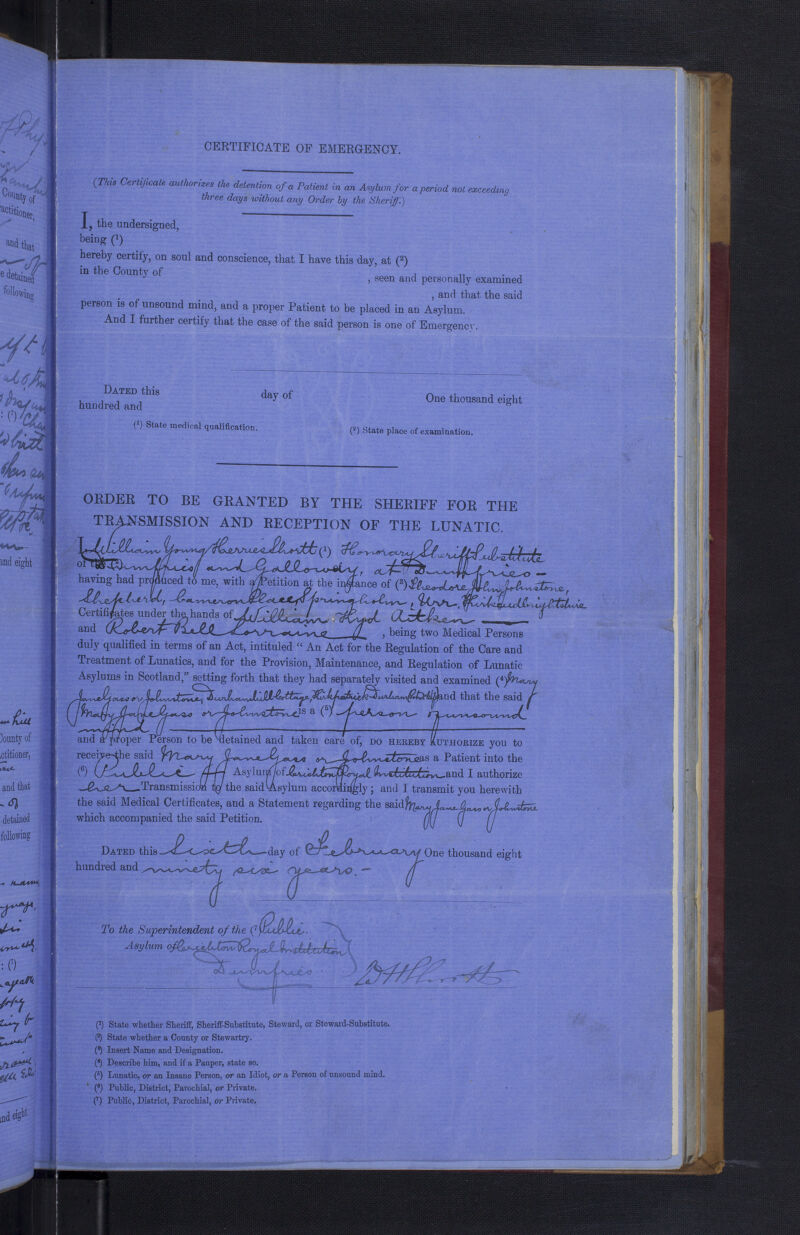 CERTIFICATE OF EMERGENCY.
(This Certificate authorizes the detention of a Patient in an Asylum for a period not exceeding
three days without any Order by the Sheriff.)
I, the undersigned,
being (1)
hereby certify, on soul and conscience, that I have this day, at (2)
in the County of , seen and personally examined
, and that the said
person is of unsound mind, and a proper Patient to be placed in an Asylum.
And I further certify that the case of the said person is one of Emergency.
DATED this day of One thousand eight
hundred and
(1) State medical qualification. (2) State place of examination.
ORDER TO BE GRANTED BY THE SHERIFF FOR THE
TRANSMISSION AND RECEPTION OF THE LUNATIC.
I, William Young Herries Shortt (1) Honorary Sheriff Substitute
of Dumfries and Galloway, at Dumfries —
having had produced to me, with a Petition at the instance of (3) Theodore John Johnstone,
Shepherd, Cameron Place, Springholm, Urr, Kirkcudbrightshire
Certificates under the hands of William Hyd Aitken
and Robert Bell Lorraine , being two Medical Persons
duly qualified in terms of an Act, intituled “ An Act for the Regulation of the Care and
Treatment of Lunatics, and for the Provision, Maintenance, and Regulation of Lunatic
Asylums in Scotland,” setting forth that they had separately visited and examined (4) Mary
Jane Gass or Johnstone, Durhamhill Cottage, Kirkpatrick Durham and that the said
Mary Jane Gass or Johnstone is a (5) person of unsound
mind
and a proper Person to be detained and taken care of, DO HEREBY AUTHORIZE you to
receive the said Mary Jane Gass or Johnstone as a Patient into the
(6) Public Asylum of Crichton Royal Institution and I authorize
her Transmission to the said Asylum accordingly ; and I transmit you herewith
the said Medical Certificates, and a Statement regarding the said Mary Jane Gass or Johnstone
which accompanied the said Petition.
DATED this Sixth day of February One thousand eight
hundred and ninety six years. –
To the Superintendent of the (7) Public
Asylum of Crichton Royal Institution
Dumfries.
WHShortt
(1) State whether Sheriff, Sheriff-Substitute, Steward, or Steward-Substitute.
(2) State whether a County or Stewartry.
(3) Insert Name and Designation.
(4) Describe him, and if a Pauper, state so.
(5) Lunatic, or an Insane Person, or an Idiot, or a Person of unsound mind.
(6) Public, District, Parochial, or Private.
(7) Public, District, Parochial, or Private.